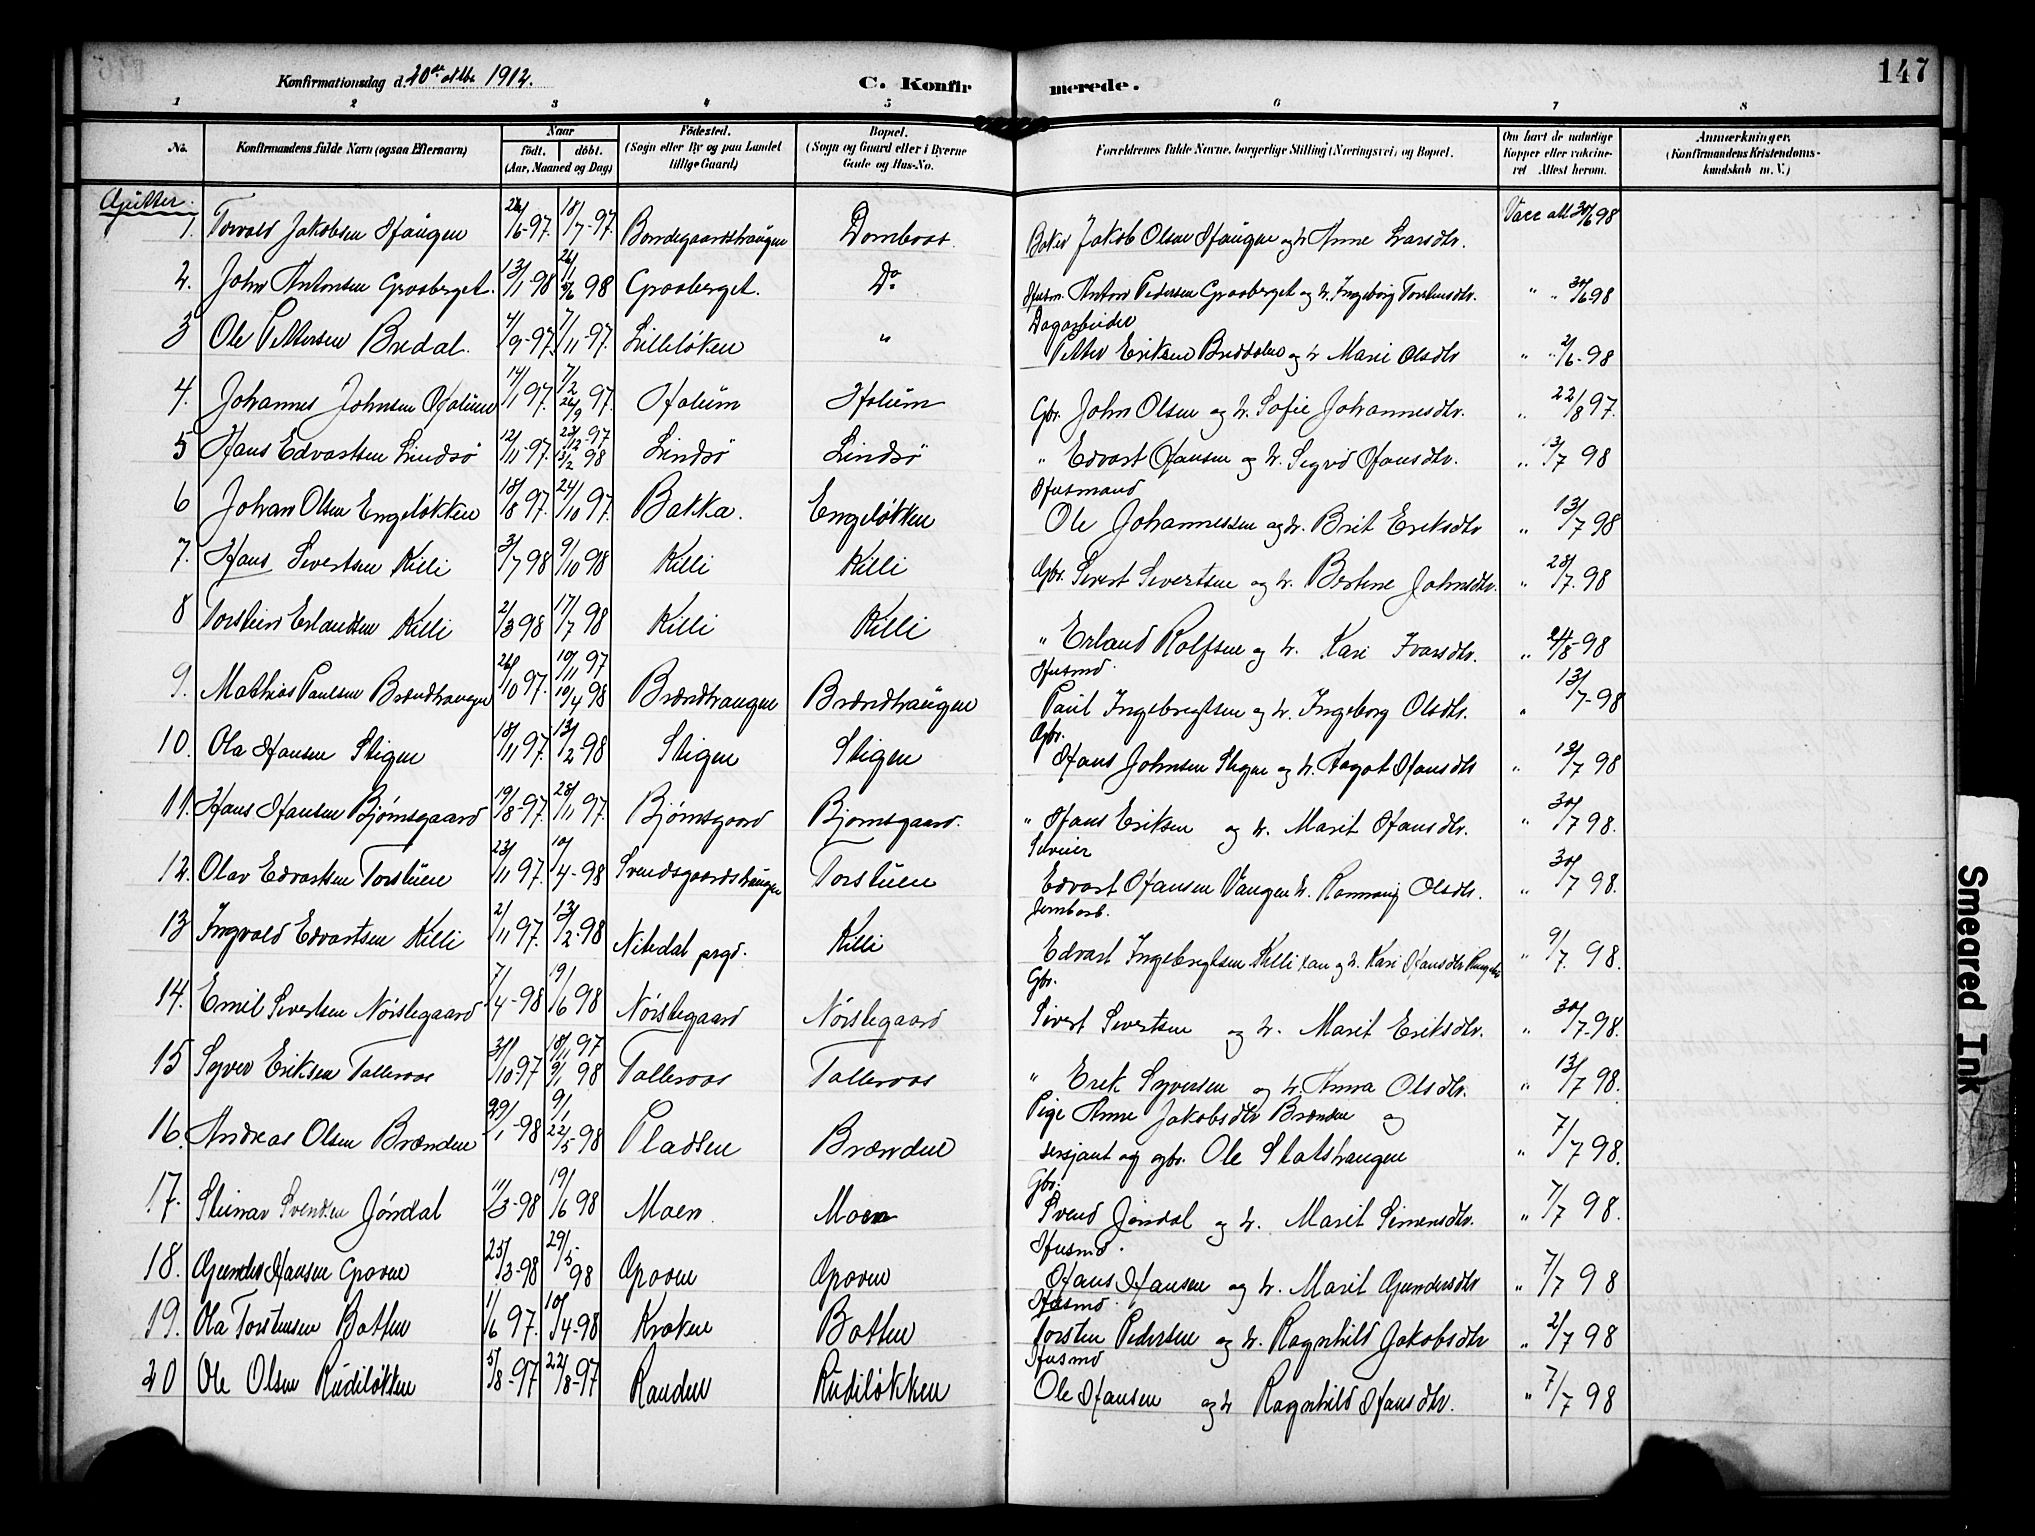 147
Konfirmationsdag d. 20de oktbr 1912.
C. Konfirmerede.
1 2 3 4 5 6 7 8
No.
Konfirmandens fulde Navn (ogsaa Efternavn)
Naar
født. døbt.
(Aar, Maaned og Dag)
Fødested.
(Sogn eller By og paa Landet
tillige Gaard)
Bopæl.
(Sogn og Gaard eller i Byerne
Gade og Hus-No.
Forældrenes fulde Navne, borgerlige Stilling (Næringsvei) og Bopæl.
Om havt de naturlige
Kopper eller vakcine-
ret Attest herom.
Anmærkninger,
(Konfirmandens Kristendoms-
kundskab m. V.)
Gutter.
1. Torvald Jakobsen Haugen 26/6-97. 18/7-97. Bondegaardshaugen Dombaas. Baker Jakob Olsen Haugen og h. Anne Larsdtr. Vacc att 30/6 98
2. John Antonsen Graaberget. 13/1-98 26/1 5/6 98 Graaberget. Do Husm. Anton Pedersen Graaberget og h. Ingeborg Torstensdtr. " " 30/6 98
3 Ole Pettersen Bredal. 4/9-97. 7/11-97. Lilleløken " Dagarbeider Petter Eriksen Breddalen og h. Marie Olsdtr " " 2/6-98
4. Johannes Johnsen Holum 14/1 97. 7/2 26/9 97. Holum Holum Gbr. John Olsen og h. Sofie Johannesdtr. " 22/8 97.
5 Hans Edvartsen Lindsø 12/11-97. 23/12-97 13/2 98 Lindsø Lindsø " Edvart Hansen og h. Sigrid Hansdtr. " 13/7 98
6 Johan Olsen Engeløkken 18/8 97. 24/10 97. Bakka. Engeløkken Husmand Ole Johannessen og h. Brit Eriksdtr " 13/7 98
7. Hans Sivertsen Killi 3/7 98 9/10 98 Killi Killi Gbr. Sivert Sivertsen og h. Bertine Johnsdtr. " 28/7. 98
8 Torstein Erlandsen Killi 2/3 98 17/7 98 Killi Killi " Erland Rolfsen og h. Kari Ivarsdtr. " 24/8-98
9. Mathias Paulsen Brændhaugen 26/10 97. 10/11 97 10/4 98 Brændhaugen Brændhaugen Husmd. Paul Ingebrigtsen og h. Ingeborg Olsdtr. " 13/7-98
10. Ola Hansen Stigen 18/11 97. 13/2-98 Stigen Stigen Gbr. Hans Johnsen Stigen og h. Aagot Hansdtr " 13/7 98
11. Hans Hansen Bjørnsgaard 19/8-97. 28/11 97. Bjørnsgaard Bjørnsgaard. " Hans Eriksen og h. Marit Hansdtr. " 30/7 98.
12. Olav Edvartsen Torstuen 23/11 97. 10/4-98 Svendsgaardshaugen Torstuen Edvart Hansen Vangen h. Rannveig Olsdtr. " 30/7 98.
13 Ingvald Edvartsen Killi 2/11 97. 13/2-98 Nitedal prgd. Killi Jernbarb. Edvart Ingebrigtsen Killi og h. Kari Hansdtr " 9/7. 98.
14. Emil Sivertsen Nørstegaard 7/4-98 19/6 98 Nørstegaard Nørstegaard Gbr. Sivert Sivertsen og h. Marit Eriksdtr. " 30/7-98.
15 Syver Eriksen Talleraas 31/10-97 18/11 97 9/1 98 Talleraas Talleraas " Erik Syversen og h. Anna Olsdtr. " 13/7 98.
16. Andreas Olsen Brænden 29/1-98 9/1 22/5-98 Pladsen Brænden Pige Anne Jakobsdtr Brænden og sersjant og gbr. Ole Slatshaugen " 7/7 98.
17. Steinar Svendsen Jøndal 11/3-98 19/6 98 Moen Moen Gbr. Svend Jøndal og h. Marit Simensdtr. " 7/7 98.
18. Gunder Hansen Graven 25/3-98 29/5 98 Graven Graven Husmd. Hans Hansen og h. Marit Gundersdtr " 7/7 98
19. Ola Torstensen Botten 1/6 97. 10/4-98 Kraken Botten Husmd. Torsten Pedersen og h. Ragnhild Jakobsdtr " 2/7 98
20 Ole Olsen Rudiløkken 5/8-97 22/8-97 Randen Rudiløkken Husmd Ole Hansen og h Ragnhild Hansdtr. " 7/7 98
Smeared Ink